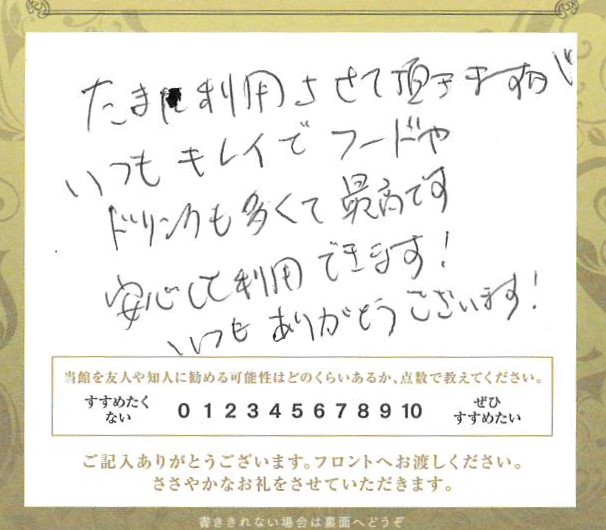 たまに利用させて頂きますが
いつもキレイでフードや
ドリンクも多くて最高です
安心して利用できます!
いつもありがとうございます!
当館を友人や知人に勧める可能性はどのくらいあるか、点数で教えてください。
すすめたく
ない
0 1 2 3 4 5 6 7 8 9 10
ぜひ
すすめたい
ご記入ありがとうございます。フロントへお渡しください。
ささやかなお礼をさせていただきます。
書ききれない場合は裏面へどうぞ